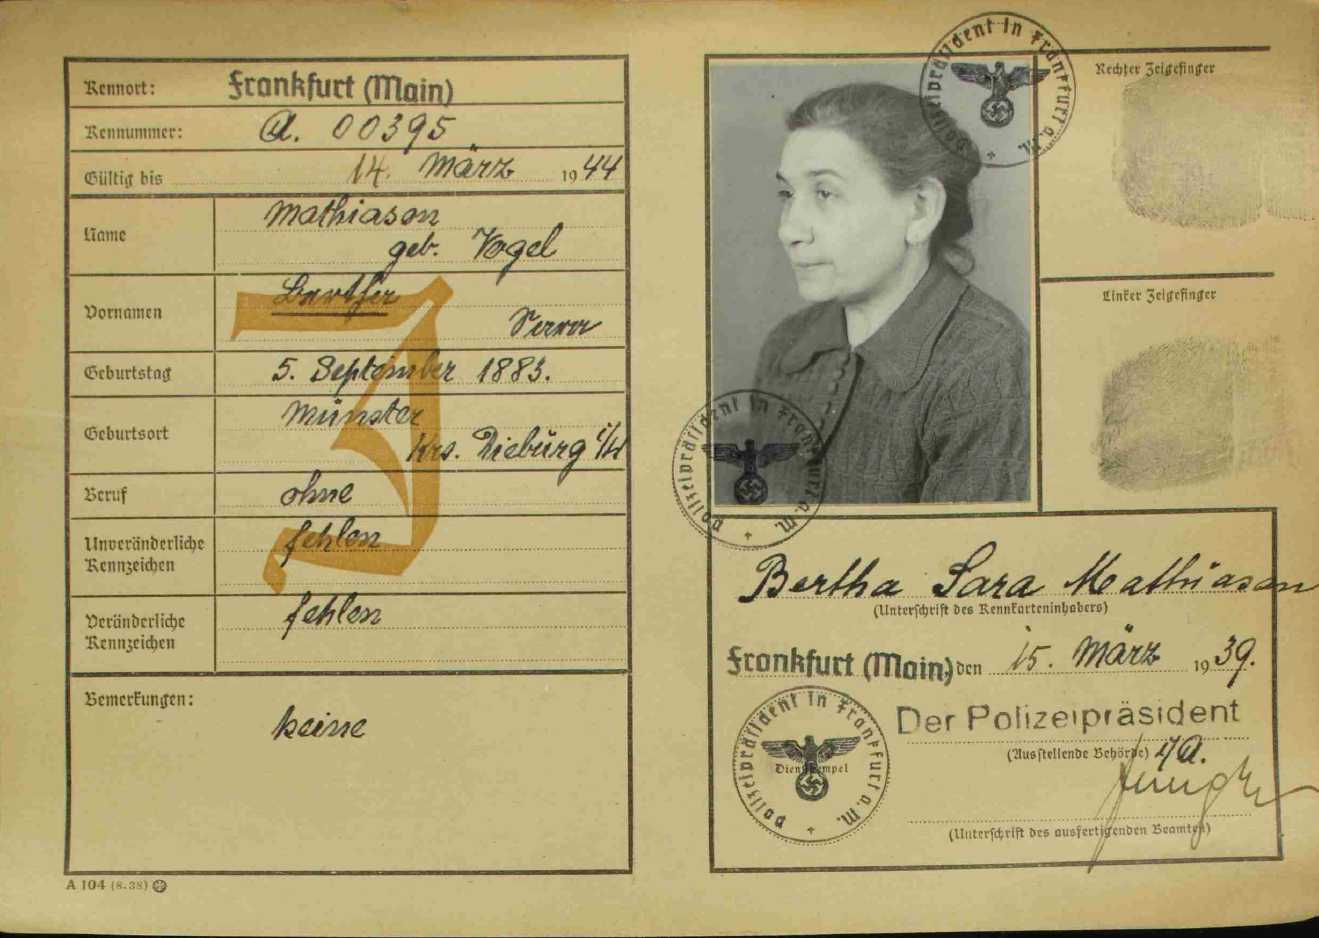 Kennort: Frankfurt (Main)
Kennummer: A. 00395
Gültig bis 14. März 1944
Name Mathiason
geb. Vogel
Vornamen Bertha
Sara
Geburtstag 5. September 1883.
Geburtsort Münster
Krs. Dieburg i/H
Beruf ohne
Unveränderliche
Kennzeichen fehlen
Veränderliche
Kennzeichen fehlen
Bemerkungen:
keine
J
A 104 (8.38)
Polizeipräsident in Frankfurt a.M.
Rechter Zeigefinger
Linker Zeigefinger
Polizeipräsident in Frankfurt a.M.
Bertha Sara Mathiason
(Unterschrift des Kennkarteninhabers)
Frankfurt (Main) den 15. März 1939.
Der Polizeipräsident
(Ausstellende Behörde) i/A.
Polizeipräsident in Frankfurt a.M.
Dienststempel
(Unterschrift des ausfertigenden Beamten)